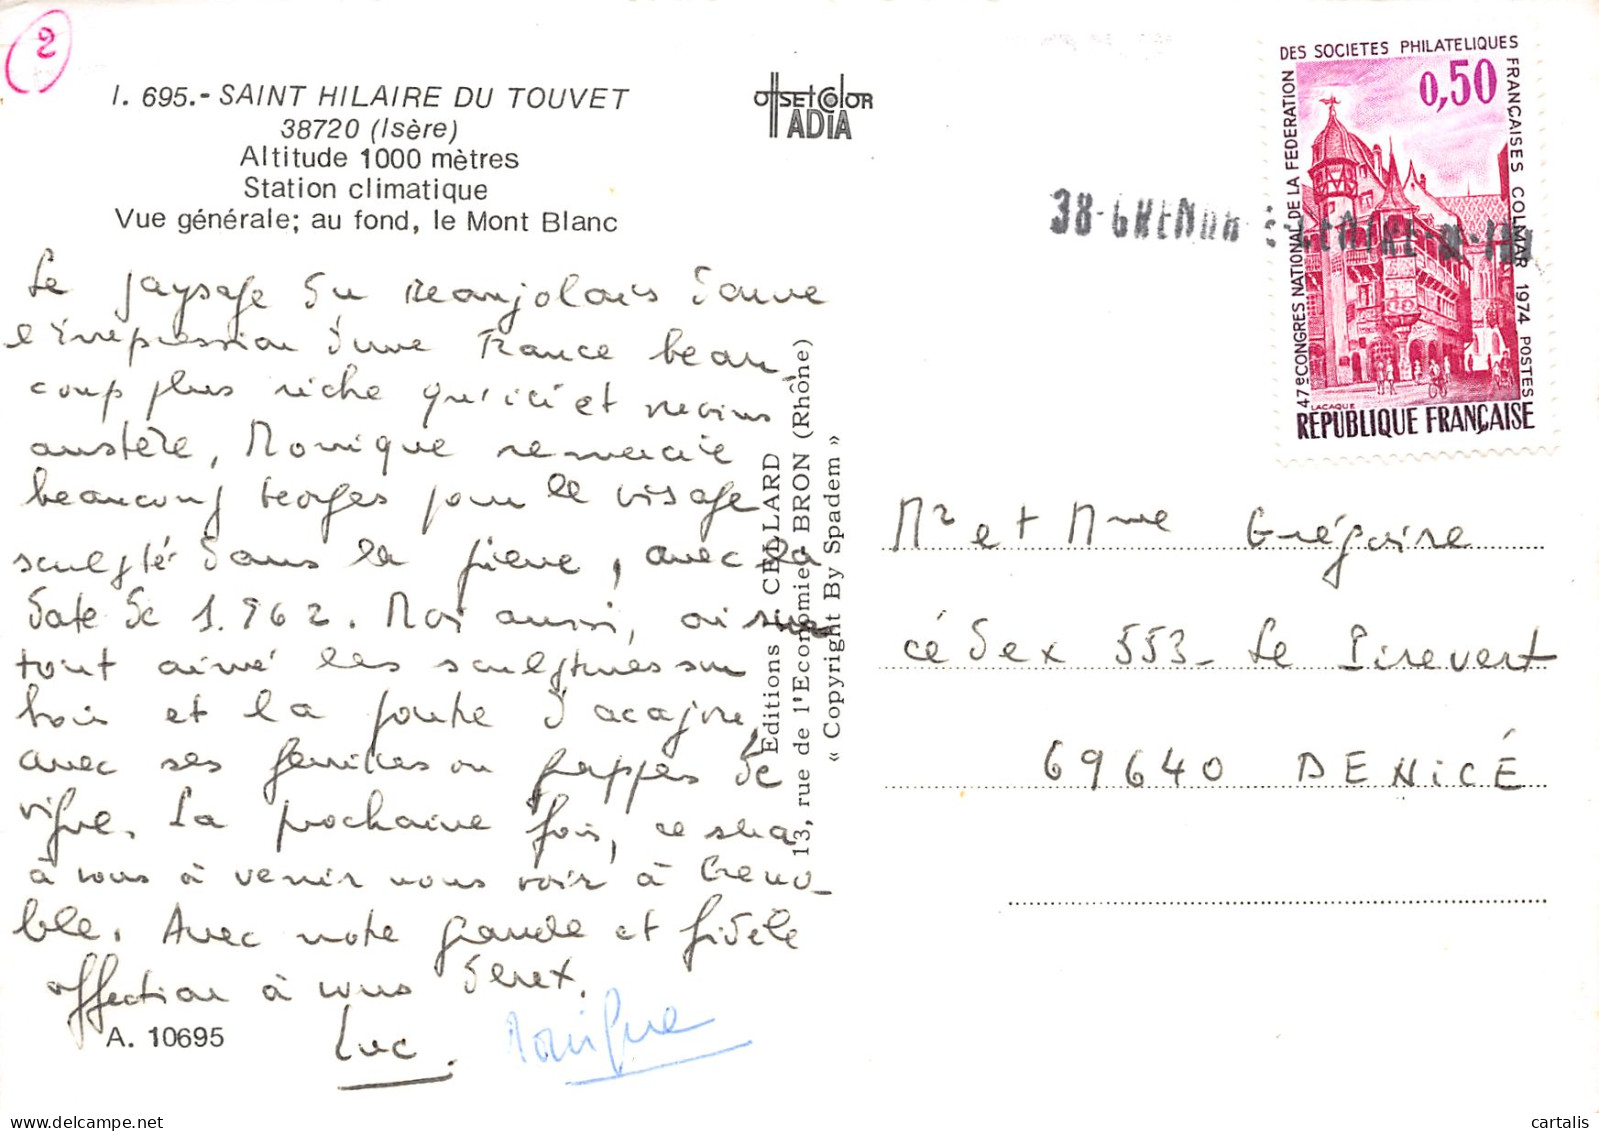 2
I. 695.- SAINT HILAIRE DU TOUVET
38720 (Isère)
Altitude 1000 mètres
Station climatique
Vue générale; au fond, le Mont Blanc
OffsetColor
ADIA
DES SOCIETES PHILATELIQUES
47e CONGRES NATIONAL DE LA FEDERATION
FRANÇAISES COLMAR 1974 POSTES
0,50
LACAQUE
REPUBLIQUE FRANÇAISE
38-GRENOB
Le paysage du Beaujolais donne
l'impression d'une France beau-
coup plus riche qu'ici et moins
austère, Monique remercie
beaucoup Georges pour le visage
sculpté dans la pierre, avec la
date de 1.962. Moi aussi, ai
tout aimé les sculptures sur
bois et la porte d'acajou,
avec ses feuilles ou grappes de
vigne. La prochaine fois, ce sera
à vous à venir nous voir à Greno-
ble. Avec notre grande et fidèle
affection à vous deux.
Luc. Monique
A. 10695
Editions CELLARD
13, rue de l'Economie, BRON (Rhône)
« Copyright By Spadem »
Mr et Mme Grégoire
cédex 553 - Le Pirevert
69640 DENICÉ
cartalis